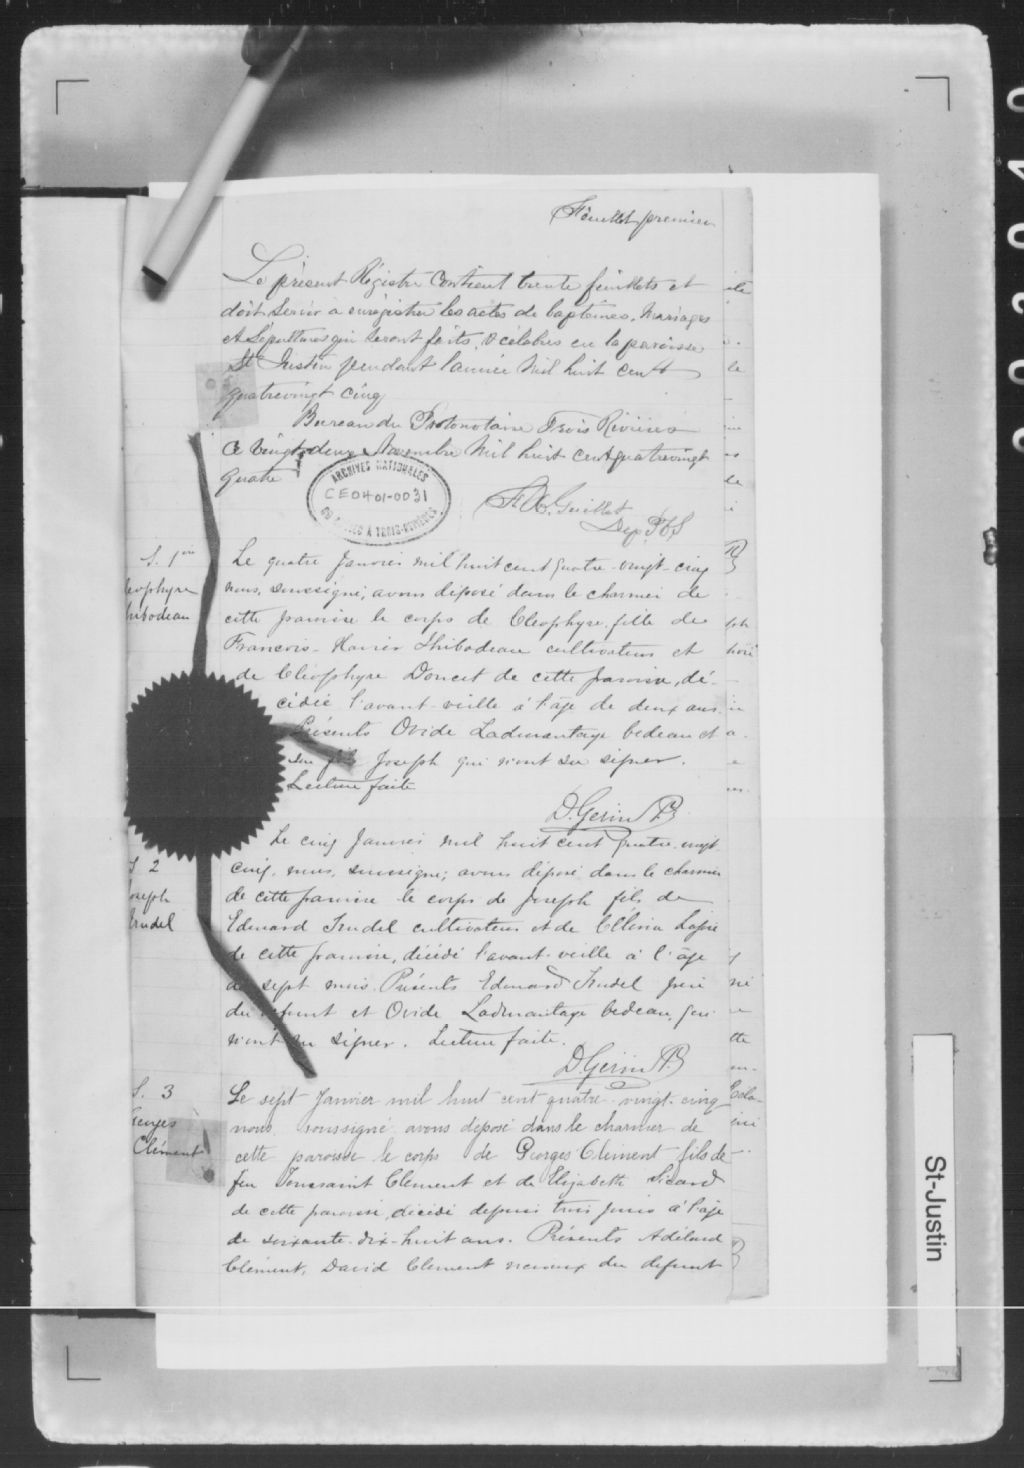 Feuillet premier
Le présent Régistre Contient trente feuillets et
doit servir à enrégistrer les actes de baptêmes, Mariages
et Sépultures qui seront faits & célébrés en la paroisse
St Justin pendant l'année Mil huit cent
quatrevingt cinq
Bureau du Protonotaire Trois Rivières
Ce vingt deux Novembre Mil huit cent quatrevingt
quatre
ARCHIVES NATIONALES
CE0401-0031
DU QUÉBEC À TROIS-RIVIÈRES
Guillet
Dep. P.C.S
S. 1ère
Le quatre Janvier mil huit cent quatre-vingt-cinq
nous, soussigné, avons déposé dans le charnier de
cette paroisse le corps de Cléophyre, fille de
François-Xavier Thibodeau cultivateur et
de Cléophyre Doucet de cette paroisse, dé-
cédée l'avant-veille à l'âge de deux ans.
Présents Ovide Ladmantage bedeau et
son fils Joseph qui n'ont su signer.
Lecture faite
D. Gerin
S. 2
Joseph
Trudel
Le cinq Janvier mil huit cent quatre-vingt
cinq, nous, soussigné, avons déposé dans le charnier
de cette paroisse le corps de Joseph fils de
Edouard Trudel cultivateur et de
de cette paroisse, décédé l'avant-veille à l'âge
de sept mois. Présents Edouard Trudel père
du défunt et Ovide Ladmantage bedeau, qui
n'ont su signer. Lecture faite.
D. Gerin
S. 3
Georges
Clément
Le sept Janvier mil huit cent quatre-vingt-cinq
nous, soussigné avons déposé dans le charnier de
cette paroisse le corps de Georges Clément fils de
feu Toussaint Clement et de Elizabeth Sicard
de cette paroisse, décédé depuis trois jours à l'âge
de soixante-dix-huit ans. Présents Adélard
Clément, David Clement neveux du defunt
St-Justin